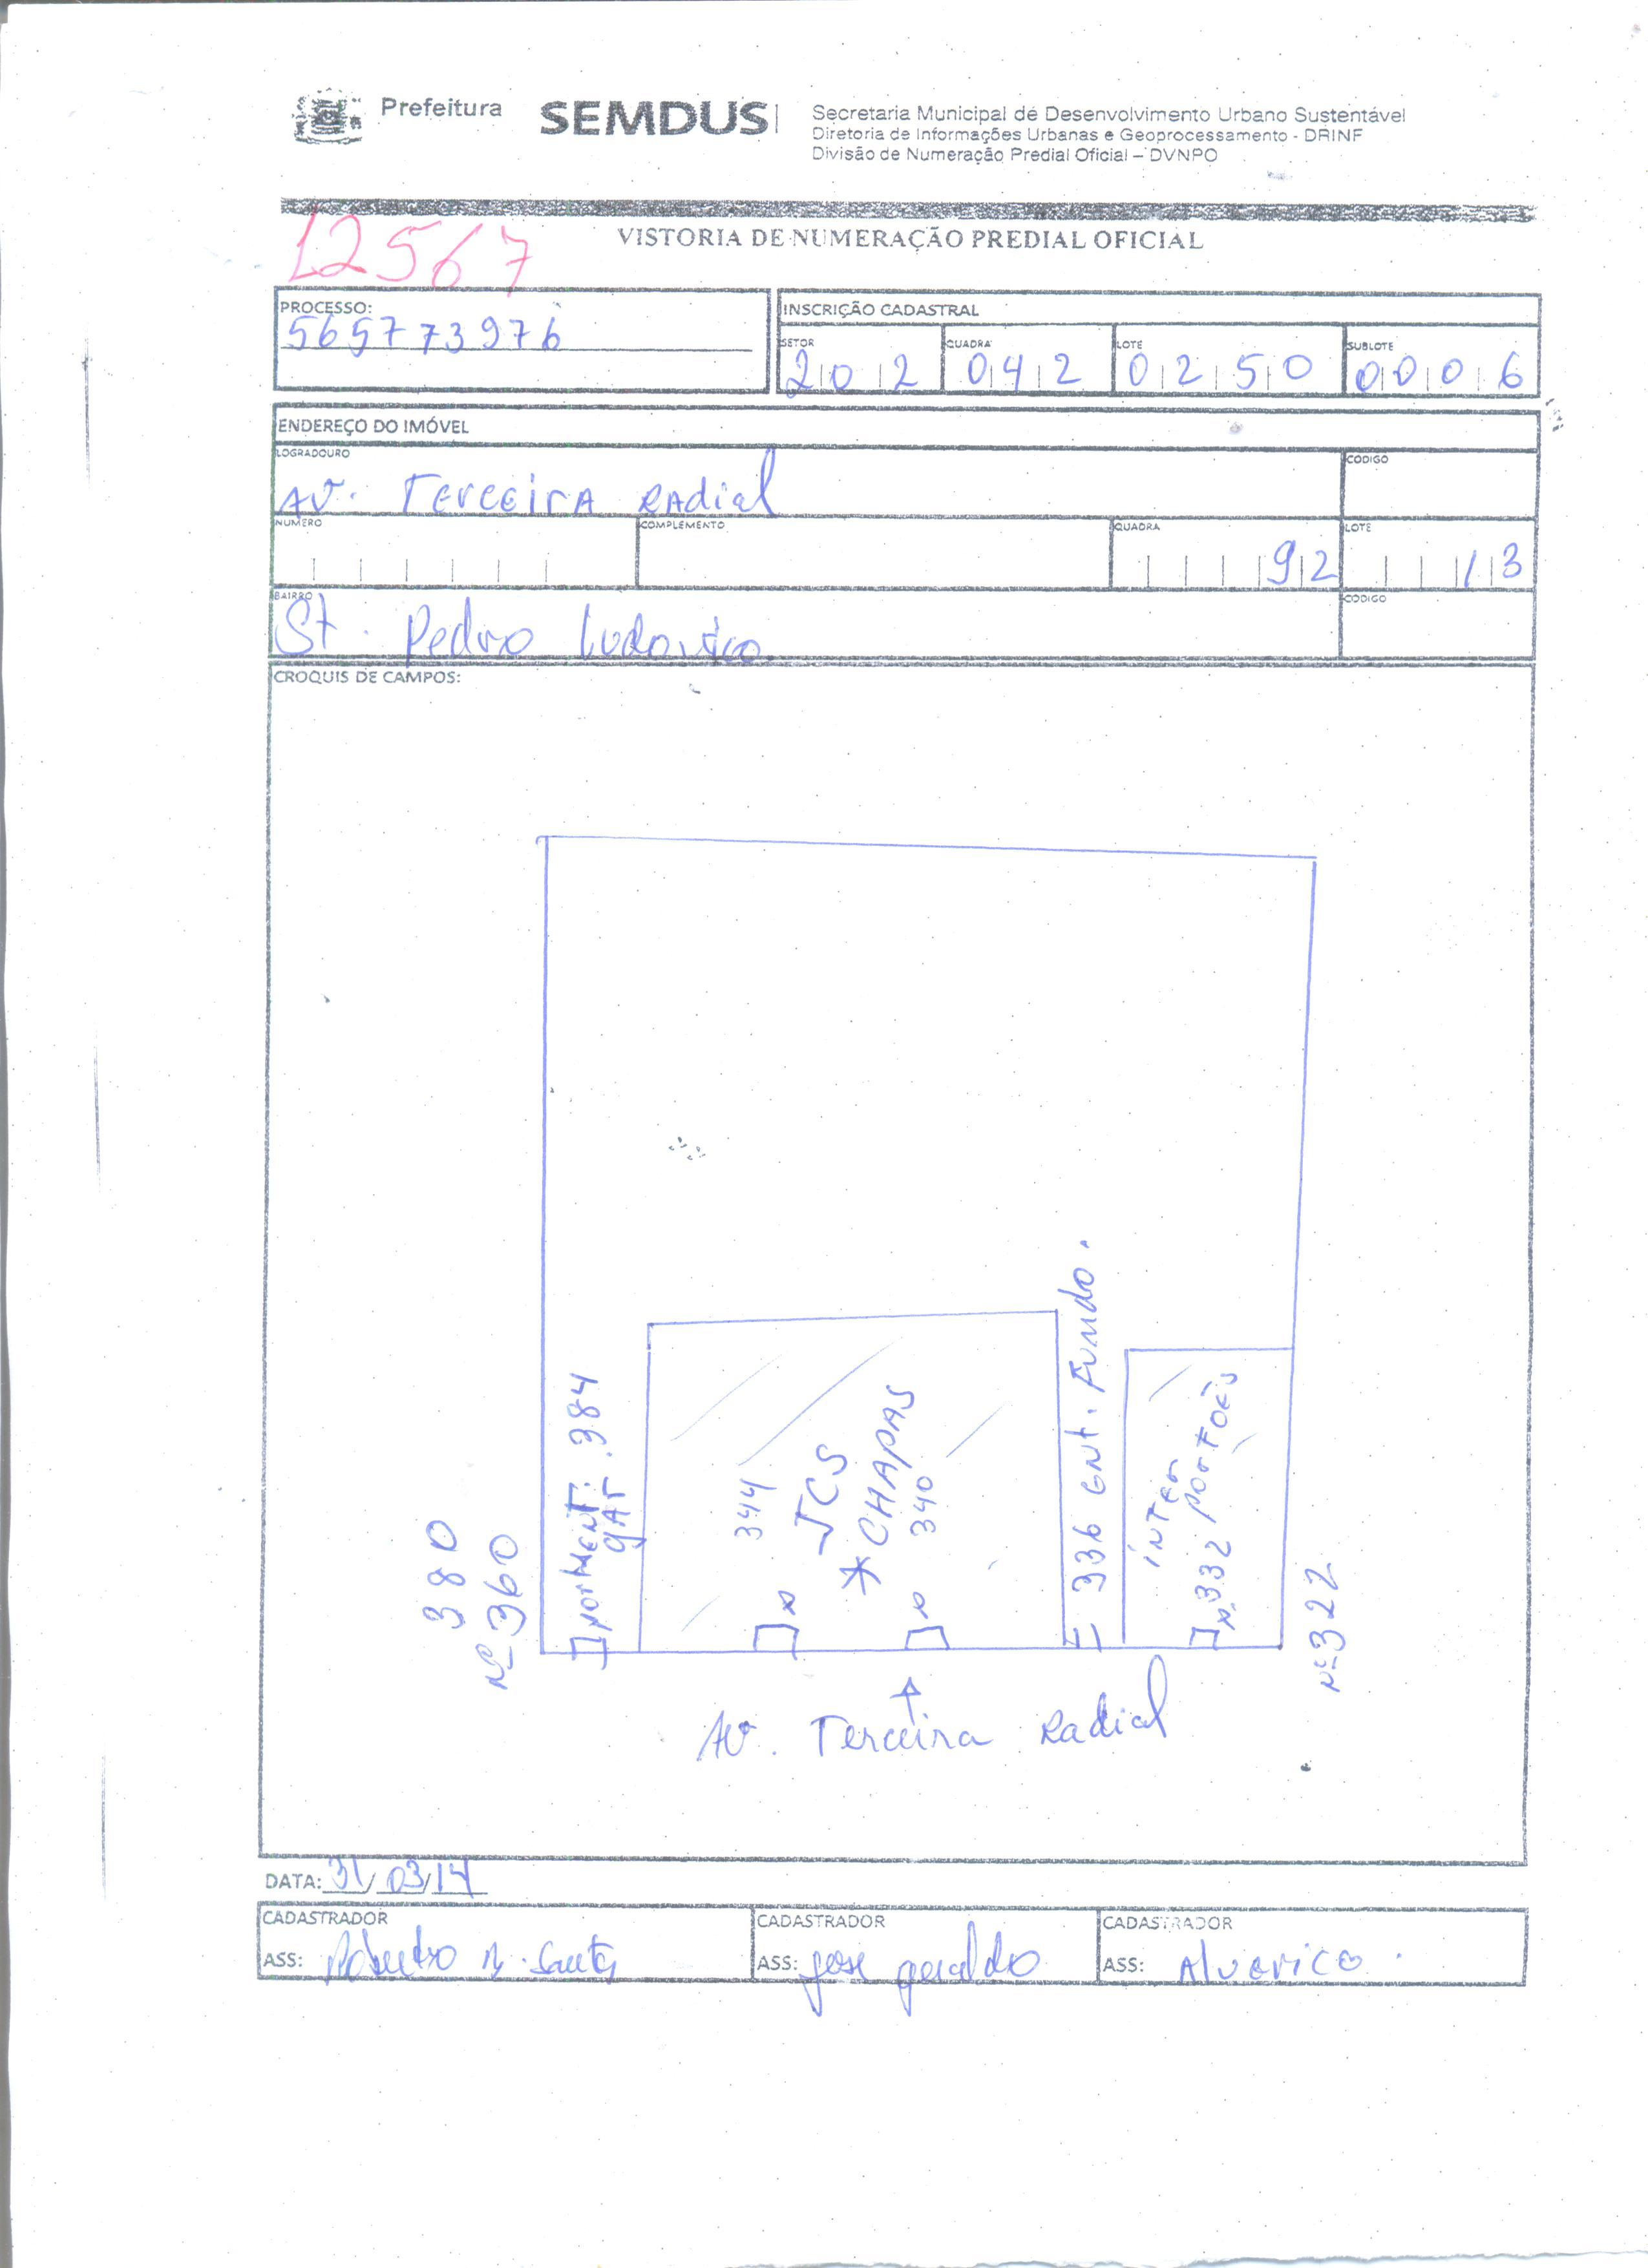 Prefeitura SEMDUS
Secretaria Municipal de Desenvolvimento Urbano Sustentável
Diretoria de Informações Urbanas e Geoprocessamento - DRINF
Divisão de Numeração Predial Oficial – DVNPO
12567
VISTORIA DE NUMERAÇÃO PREDIAL OFICIAL
PROCESSO:
565773976
INSCRIÇÃO CADASTRAL
SETOR QUADRA LOTE SUBLOTE
202 042 0250 0006
ENDEREÇO DO IMÓVEL
LOGRADOURO CÓDIGO
AV. Terceira Radial
NÚMERO COMPLEMENTO QUADRA LOTE
92 13
BAIRRO CÓDIGO
St. Pedro Ludovico
CROQUIS DE CAMPOS:
380
Nº 360
384
344
JCS
* CHAPAS
340
336 ent. Fundo.
inter
Nº 332 portões
Nº 322
AV. Terceira Radial
DATA: 31/03/14
CADASTRADOR CADASTRADOR CADASTRADOR
ASS: ASS: jose geraldo ASS: